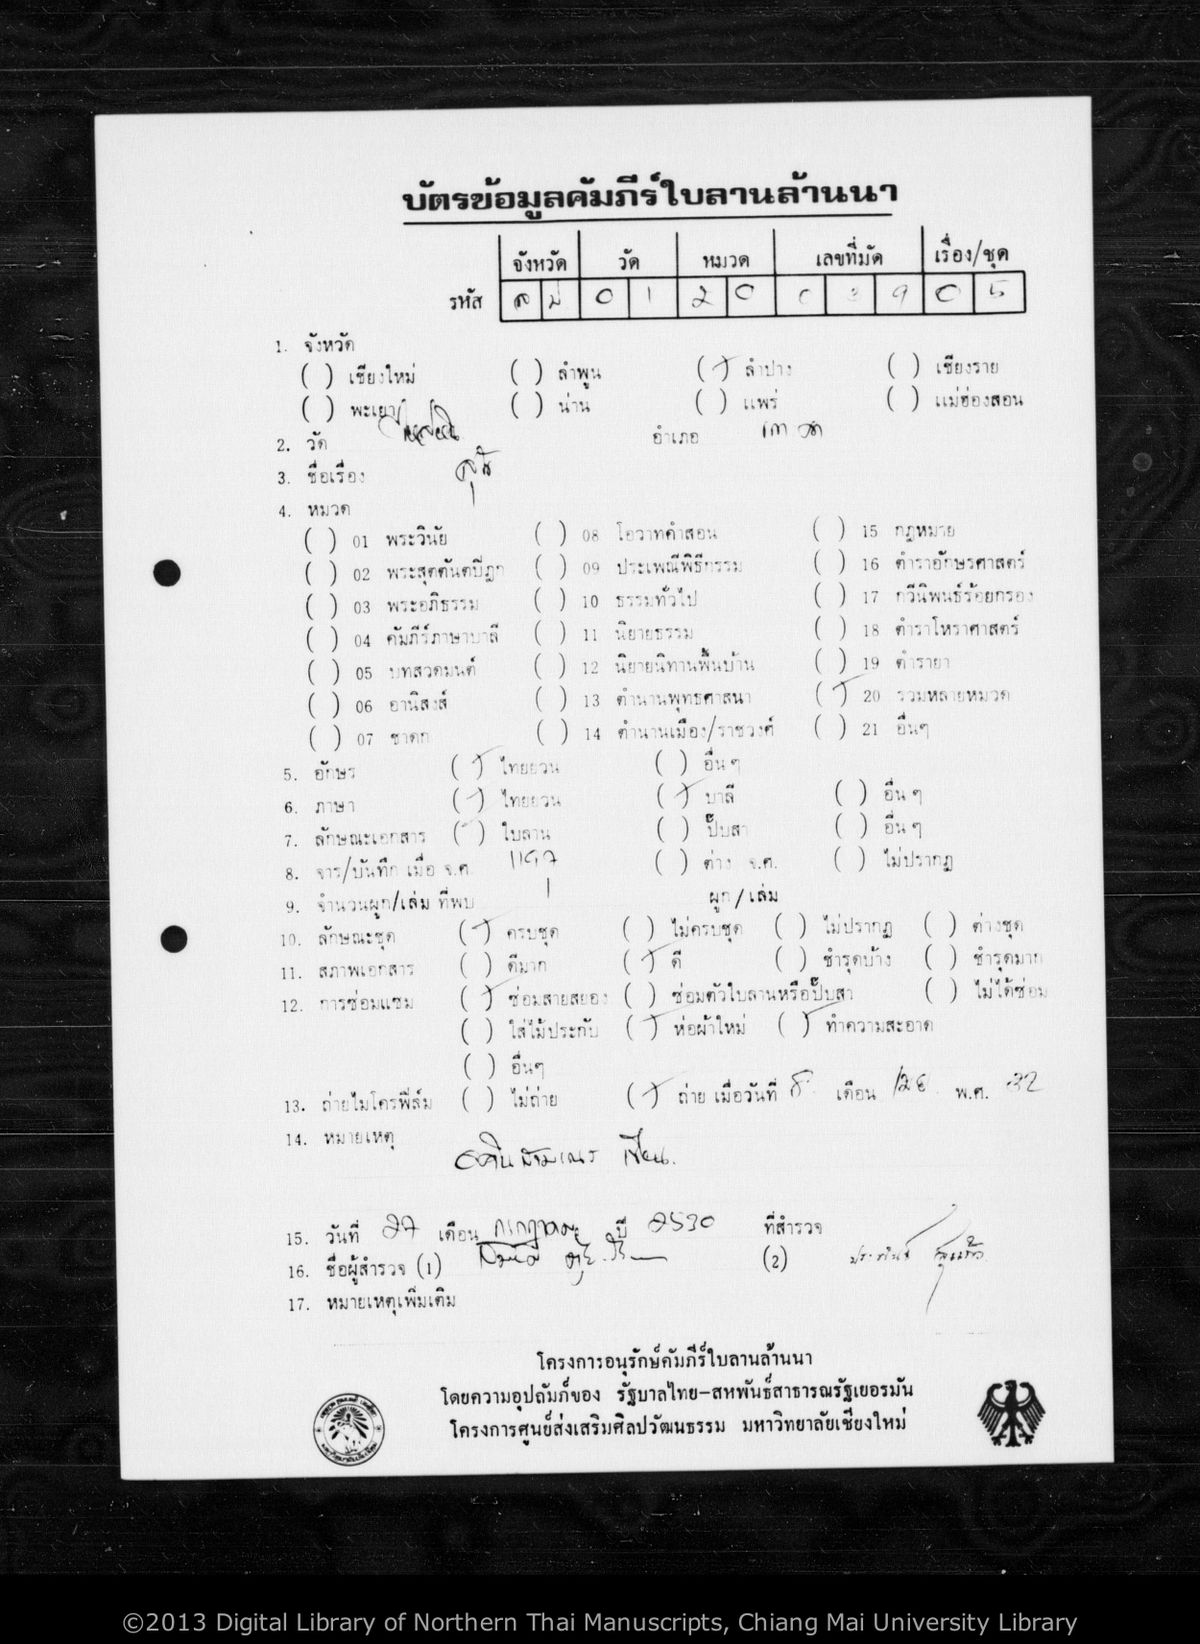 บัตรข้อมูลคัมภีร์ใบลานล้านนา
จังหวัด วัด หมวด เลขที่มัด เรื่อง/ชุด
รหัส ลป 0 1 2 0 0 3 9 0 5
1. จังหวัด
( ) เชียงใหม่ ( ) ลำพูน (/) ลำปาง ( ) เชียงราย
( ) พะเยา ( ) น่าน ( ) แพร่ ( ) แม่ฮ่องสอน
2. วัด อำเภอ เกาะคา
3. ชื่อเรื่อง
4. หมวด
( ) 01 พระวินัย ( ) 08 โอวาทคำสอน ( ) 15 กฎหมาย
( ) 02 พระสุตตันตปิฎก ( ) 09 ประเพณีพิธีกรรม ( ) 16 ตำราอักษรศาสตร์
( ) 03 พระอภิธรรม ( ) 10 ธรรมทั่วไป ( ) 17 กวีนิพนธ์ร้อยกรอง
( ) 04 คัมภีร์ภาษาบาลี ( ) 11 นิยายธรรม ( ) 18 ตำราโหราศาสตร์
( ) 05 บทสวดมนต์ ( ) 12 นิยายนิทานพื้นบ้าน ( ) 19 ตำรายา
( ) 06 อานิสงส์ ( ) 13 ตำนานพุทธศาสนา (/) 20 รวมหลายหมวด
( ) 07 ชาดก ( ) 14 ตำนานเมือง/ราชวงศ์ ( ) 21 อื่นๆ
5. อักษร (/) ไทยยวน ( ) อื่นๆ
6. ภาษา (/) ไทยยวน (/) บาลี ( ) อื่นๆ
7. ลักษณะเอกสาร (/) ใบลาน ( ) ปั๊บสา ( ) อื่นๆ
8. จาร/บันทึก เมื่อ จ.ศ. ( ) ต่าง จ.ศ. ( ) ไม่ปรากฏ
9. จำนวนผูก/เล่ม ที่พบ 1 ผูก/เล่ม
10. ลักษณะชุด (/) ครบชุด ( ) ไม่ครบชุด ( ) ไม่ปรากฏ ( ) ต่างชุด
11. สภาพเอกสาร ( ) ดีมาก (/) ดี ( ) ชำรุดบ้าง ( ) ชำรุดมาก
12. การซ่อมแซม (/) ซ่อมสายสยอง ( ) ซ่อมตัวใบลานหรือปั๊บสา ( ) ไม่ได้ซ่อม
( ) ใส่ไม้ประกับ (/) ห่อผ้าใหม่ (/) ทำความสะอาด
( ) อื่นๆ
13. ถ่ายไมโครฟิล์ม ( ) ไม่ถ่าย (/) ถ่าย เมื่อวันที่ 8 เดือน พ.ศ. 32
14. หมายเหตุ
15. วันที่ 27 เดือน กรกฎาคม ปี 2530 ที่สำรวจ
16. ชื่อผู้สำรวจ (1) (2)
17. หมายเหตุเพิ่มเติม
โครงการอนุรักษ์คัมภีร์ใบลานล้านนา
โดยความอุปถัมภ์ของ รัฐบาลไทย-สหพันธ์สาธารณรัฐเยอรมัน
โครงการศูนย์ส่งเสริมศิลปวัฒนธรรม มหาวิทยาลัยเชียงใหม่
©2013 Digital Library of Northern Thai Manuscripts, Chiang Mai University Library